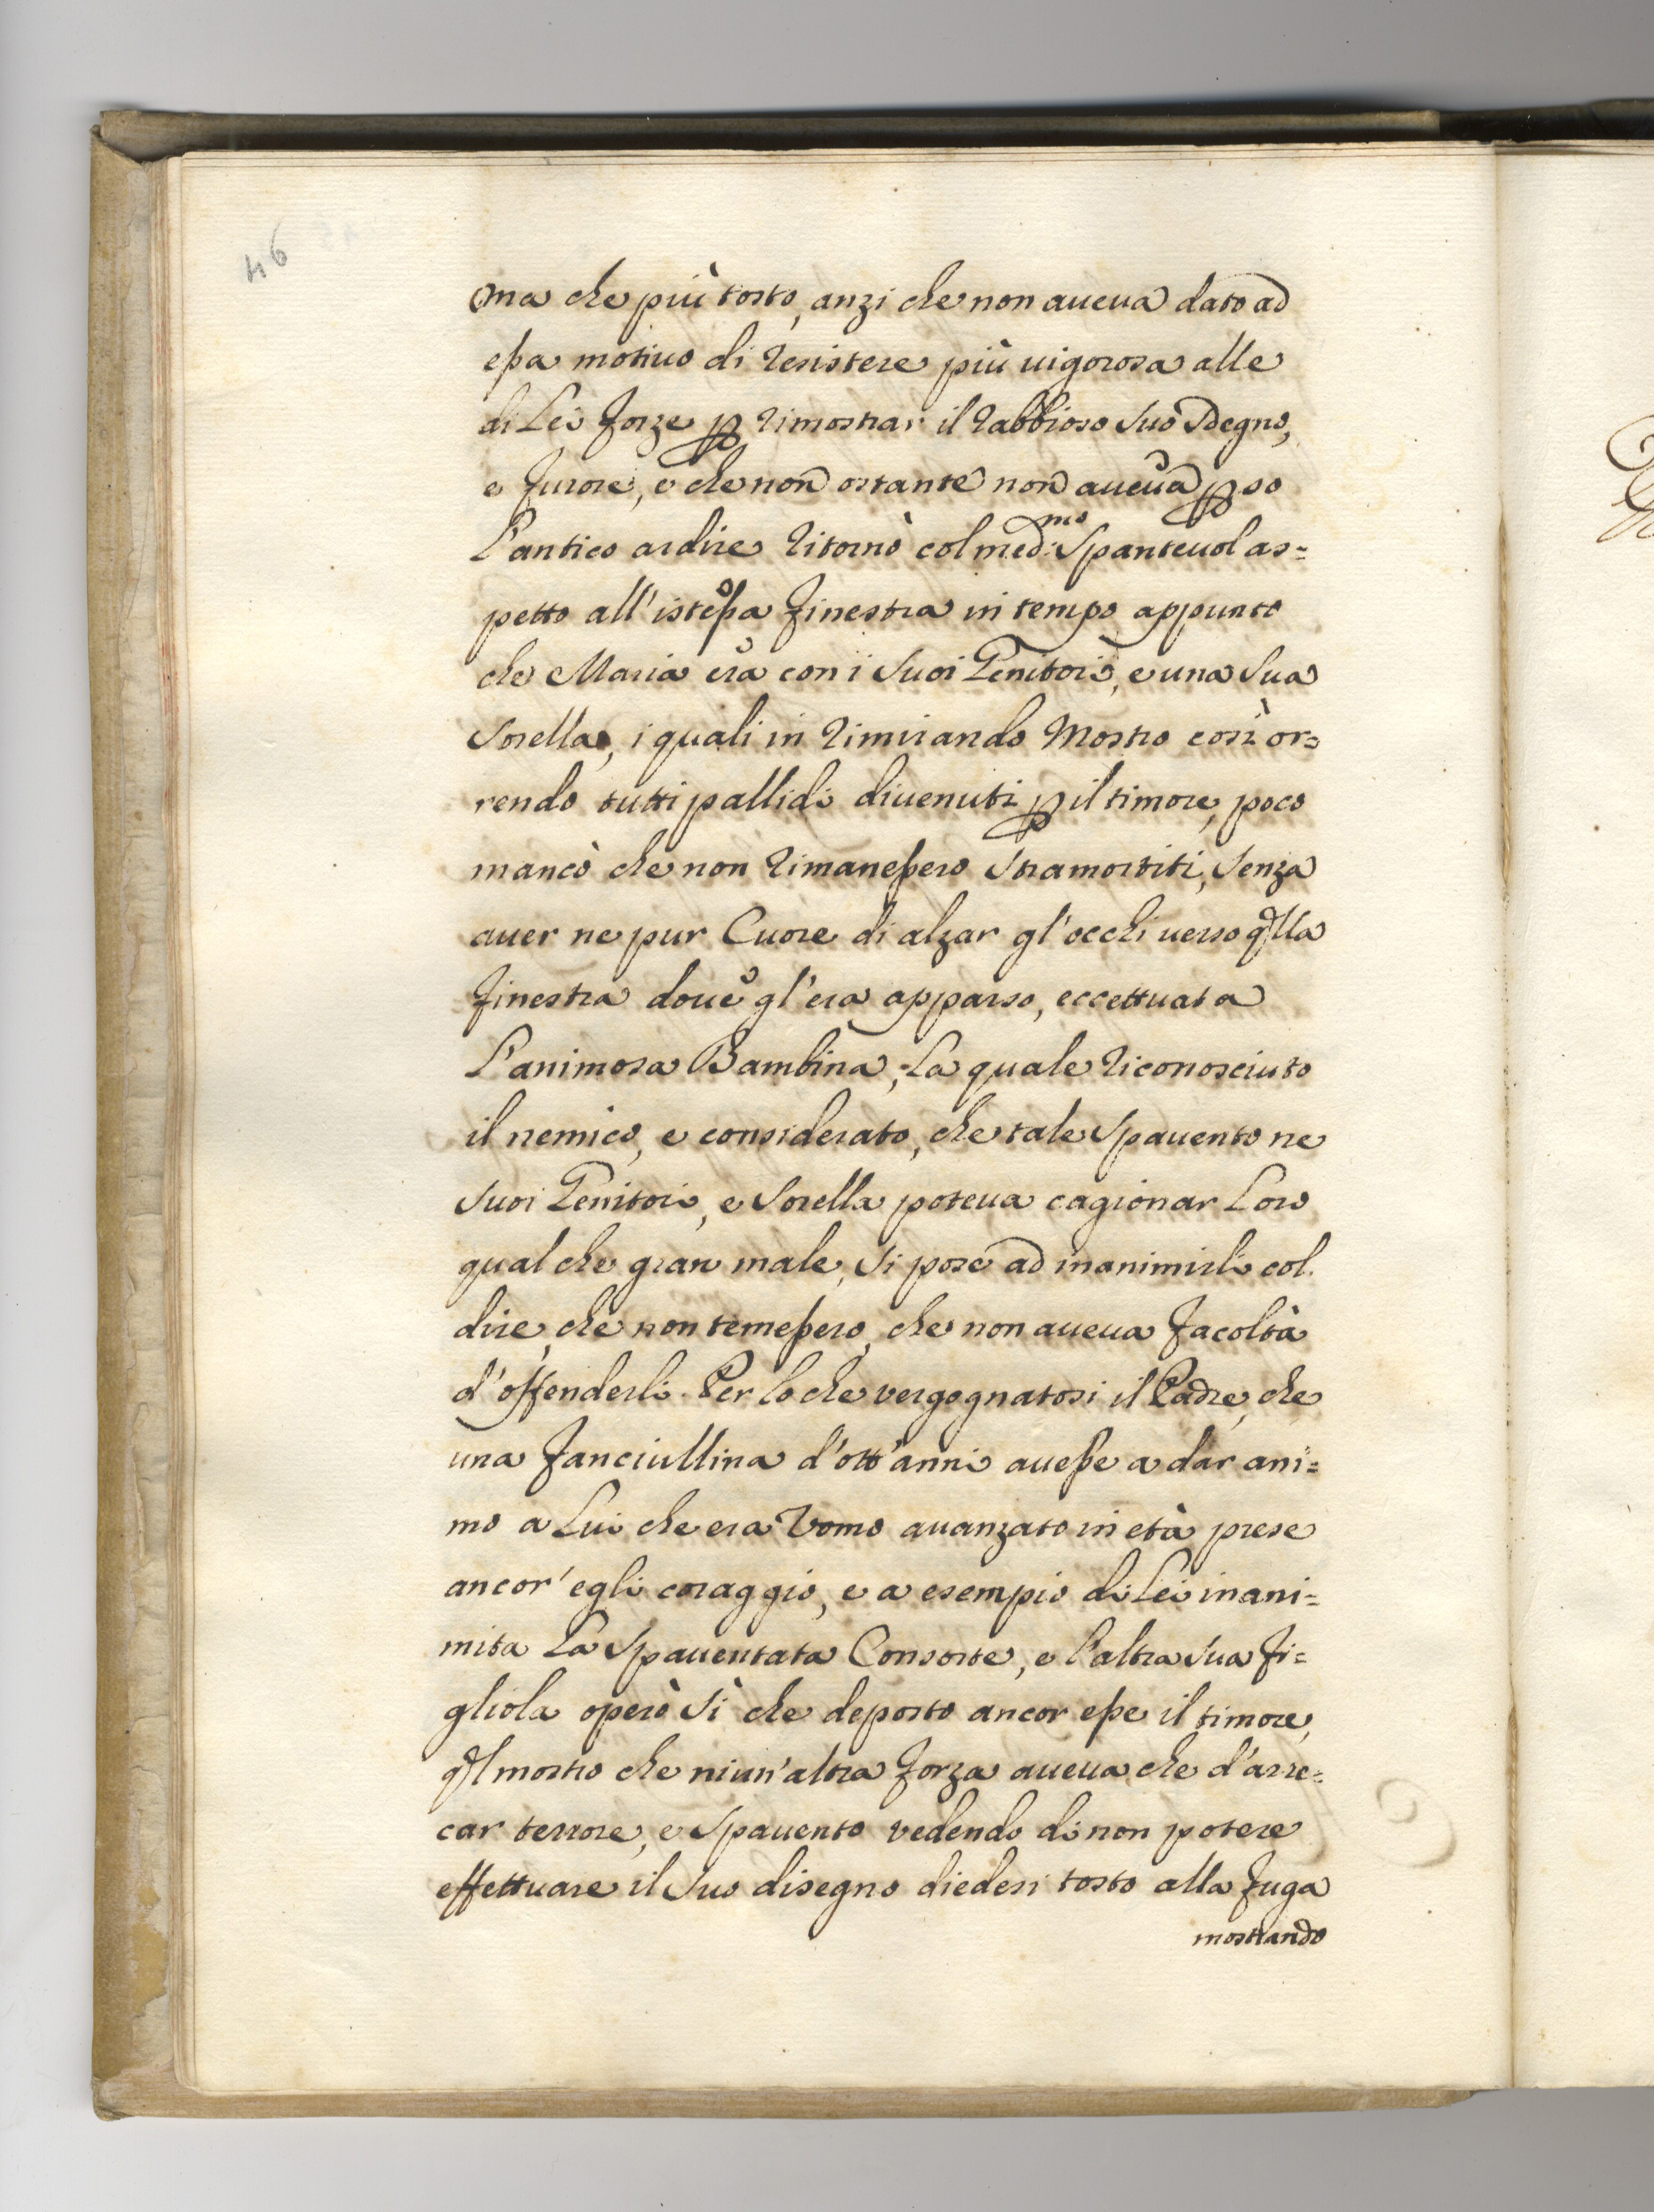 46
ma che più tosto, anzi che non aueua dato ad
essa motiuo di resistere più uigorosa alle
di Lei forze p rimostrar il rabbioso suo sdegno,
e furore, e che non ostante non aueua pso
l'antico ardire ritornò col med:mo spauteuol as=
petto all'istessa finestra in tempo appunto
che Maria era con i suoi Genitori, e una sua
sorella, i quali in rimirando Mostro così or=
rendo tutti pallidi diuenuti p il timore, poco
mancò che non rimanessero stramortiti, senza
auer ne pur Cuore di alzar gl'occhi uerso qlla
finestra doue gl'era apparso, eccettuata
l'animosa Bambina, La quale riconosciuto
il nemico, e considerato, che tale spauento ne
suoi Genitori, e sorella poteua cagionar Loro
qualche gran male, si pose ad inanimirli col
dire, che non temessero, che non aueua facoltà
d'offenderli. Per lo che vergognatosi il Padre, che
una fanciullina d'ott'anni auesse a dar ani=
mo a Lui che era Vomo auanzato in età prese
ancor'egli coraggio, e a esempio di Lei inani=
mita La spauentata Consorte, e l'altra sua fi=
gliola operò sì che deposto ancor esse il timore,
ql mostro che niun'altra forza aueua che d'arre=
car terrore, e spauento vedendo di non potere
effettuare il suo disegno diedesi tosto alla fuga
mostrando